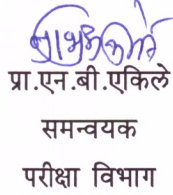 प्रा.एन.बी.एकिले
समन्वयक
परीक्षा विभाग